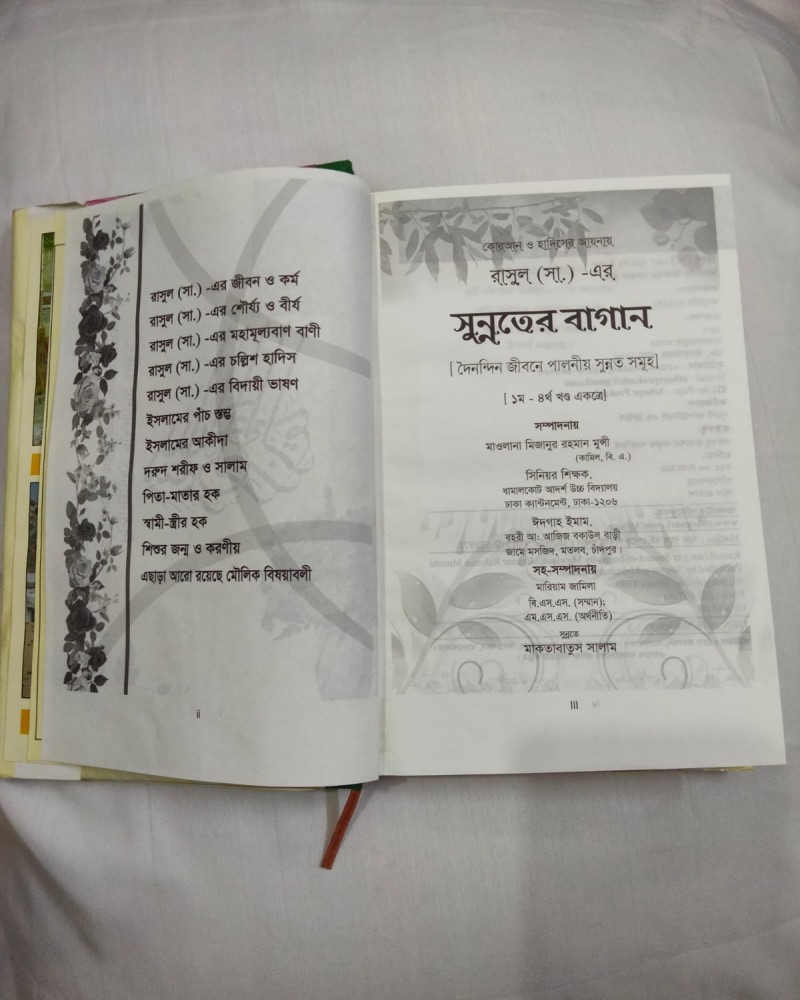 রাসুল (সা.) -এর জীবন ও কর্ম
রাসুল (সা.) -এর শৌর্য্য ও বীর্য
রাসুল (সা.) -এর মহামূল্যবাণ বাণী
রাসুল (সা.) -এর চল্লিশ হাদিস
রাসুল (সা.) -এর বিদায়ী ভাষণ
ইসলামের পাঁচ স্তম্ভ
ইসলামের আকীদা
দরুদ শরীফ ও সালাম
পিতা-মাতার হক
স্বামী-স্ত্রীর হক
শিশুর জন্ম ও করণীয়
এছাড়া আরো রয়েছে মৌলিক বিষয়াবলী
ii
কোরআন ও হাদিসের আয়নায়
রাসুল (সা.) -এর
সুন্নতের বাগান
[দৈনন্দিন জীবনে পালনীয় সুন্নত সমূহ]
[ ১ম - ৪র্থ খণ্ড একত্রে]
সম্পাদনায়
মাওলানা মিজানুর রহমান মুন্সী
(কামিল, বি. এ.)
সিনিয়র শিক্ষক,
ধামালকোট আদর্শ উচ্চ বিদ্যালয়
ঢাকা ক্যান্টনমেন্ট, ঢাকা-১২০৬
ঈদগাহ ইমাম,
বহরী আঃ আজিজ বকাউল বাড়ী
জামে মসজিদ, মতলব, চাঁদপুর।
সহ-সম্পাদনায়
মারিয়াম জামিলা
বি.এস.এস. (সম্মান);
এম.এস.এস. (অর্থনীতি)
সুন্নতে
মাকতাবাতুস সালাম
III